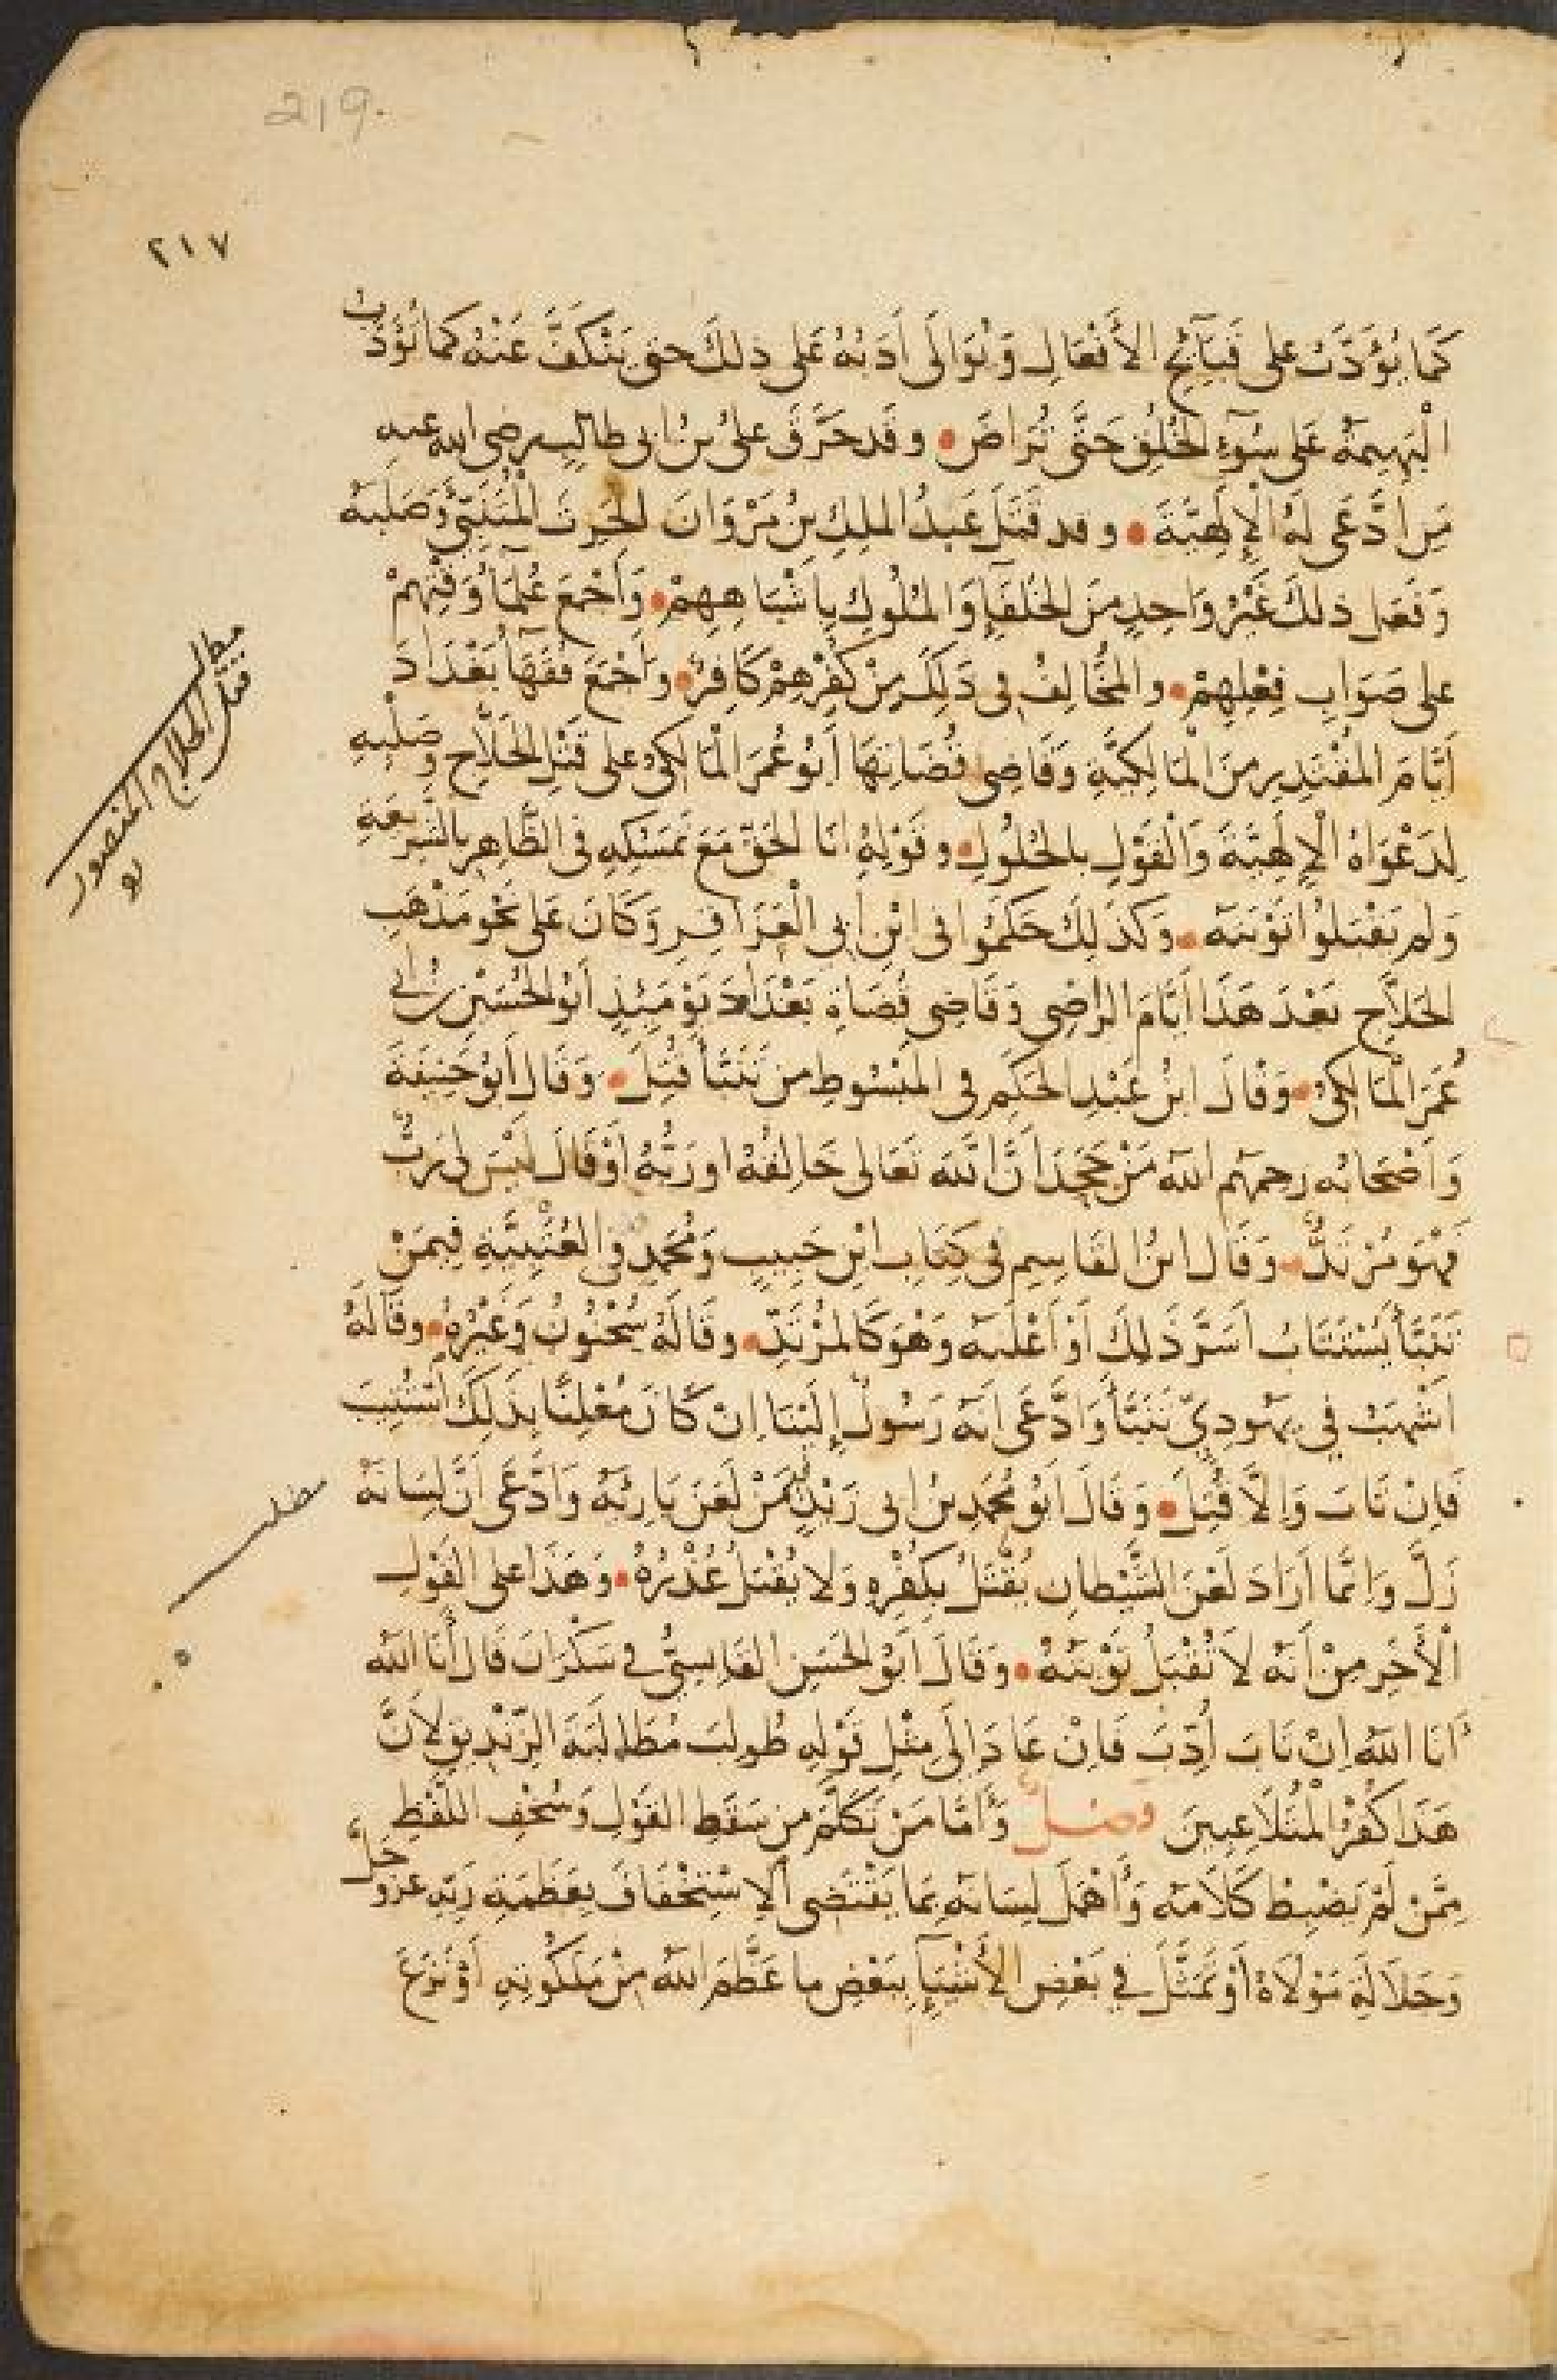 219.
٢١٧
كَمَا يُؤَدَّبُ على قَبَآئِحِ الأَفْعَالِ وَيُوَالَى أَدَبُهُ عَلى ذلِكَ حتى يَنْكَفَّ عَنْهُ كَمَا تُؤَدَّبُ
الْبَهِيمَةُ عَلى سُوءِ الخُلُقِ حَتَّى تُرَاضَ • وقد حَرَّقَ علىُّ بنُ ابى طالبٍ رضى الله عنه
مَنِ ادَّعَى لَهُ الْإِلَهِيَّةَ • وقد قَتَلَ عَبدُ الملِكِ بنُ مَرْوَانَ الحَرِثَ الْمُتَنَبِّئَ وَصَلَبَهُ
وَفَعَل ذلكَ غَيْرُ وَاحِدٍ مِنَ الخُلَفَآءِ وَالمُلُوكِ بِأَشْبَاهِهِمْ • وَأَجْمَعَ عُلَمَآءُ وَقْتِهِمْ
على صَوَابِ فِعْلِهِمْ • والمُخَالِفُ فى ذَلِكَ مِنْ كُفْرِهِمْ كَافِرٌ • وأجْمَعَ فُقَهَآءُ بَغْدَادَ
أَيَّامَ المُقْتَدِرِ مِنَ الْمَالِكِيَّةِ وَقَاضِى قُضَاتِهَا أَبُو عُمَرَ الْمَالِكىُّ على قَتْلِ الحَلَّاجِ وصَلْبِهِ
لِدَعْوَاهُ الْإِلَهِيَّةَ وَالْقَوْلِ بالحُلُولِ • وقَوْلِهِ انَا الحَقّ مَعَ تَمَسُّكِهِ فى الظَّاهِرِ بالشَّرِيعَةِ
وَلم يَقْبَلُوا تَوْبَتَه • وَكَذلِكَ حَكَمُوا فى ابْنِ ابى الْغَرَاقِيرِ وَكَانَ عَلى نَحْوِ مَذْهَبِ
الحَلَّاجِ بَعْدَ هَذَا أَيَّامَ الرَّاضِى وَقَاضِى قُضَاةِ بَغْدَادَ يَوْمَئِذٍ أَبُو الحُسَيْنِ بْنُ أبى
عُمَرَ الْمَالكىُّ • وَقَالَ ابنُ عَبْدِ الحَكَمِ فى المَبْسُوطِ من تَنَبَّأَ قُتِلَ • وَقَال أَبُو حَنِيفَةَ
وَأَصْحَابُه رحمهم الله مَنْ جَحَدَ أَنَّ اللهَ تَعَالى خَالِقُهُ او رَبُّهُ أَوْ قَالَ لَيْسَ لى رَبٌّ
فَهْوَ مُرْتَدٌّ • وَقَال ابنُ القَاسِمِ فى كِتَابِ ابْنِ حَبِيبٍ وَمُحَمَّدٍ فى العُتْبِيَّةِ فِيمَنْ
تَنَبَّأَ يُسْتَتَابُ أَسَرَّ ذَلِكَ أَوْ أَعْلَنَه وَهْوَ كَالمُرْتَدِّ • وقَالَهُ سُحْنُونٌ وَغَيْرُهُ • وقَالَهُ
اشْهَبُ فى يهُودِىٍّ تَنَبَّأَ وَادَّعَى انَّه رَسُولٌ إِلَيْنَا اِنْ كَانَ مُعْلِنًا بِذَلِكَ اسْتُتِيبَ
فَاِنْ تَابَ وَاِلَّا قُتِلَ • وَقَالَ أَبُو مُحَمَّدِ بنُ ابى زَيْدٍ فِيمَنْ لَعَنَ بَارِئَهُ وَادَّعَى أَنَّ لِسَانَهُ
زَلَّ وَاِنَّمَا أَرَادَ لَعْنَ الشَّيْطَانِ يُقْتَلُ بِكُفْرِهِ وَلا يُقْبَلُ عُذْرُهُ • وَهَذَا على القَوْلِ
الْأَخَرِ مِنْ أَنَّه لَا تُقْبَلُ تَوْبَتُهُ • وَقَالَ أَبُو الحَسَنِ القَابِسِىُّ فى سَكْرَانَ قَالَ أَنَا الله
أَنَا اللهُ اِنْ تَابَ أُدِّبَ فَاِنْ عَادَ اِلَى مِثْلِ قَوْلِهِ طُولِبَ مُطَالَبَةَ الزِّنْدِيقِ لأَنَّ
هَذَا كُفْرُ الْمُتَلَاعِبِينَ فصلٌ وَأَمَّا مَنْ تَكَلَّمَ مِن سَقَطِ القَوْلِ وَسُخْفِ اللفْظِ
مِمَّنْ لَمْ يَضْبِطْ كَلَامَه وَأَهْمَلَ لِسَانَه بِمَا يَقْتَضِى الاِسْتِخْفَافَ بِعَظَمَةِ رَبِّهِ عز وجَلَّ
وَجَلَالَةِ مَوْلَاهُ أَوْ تَمَثَّلَ فى بَعْضِ الأَشْيَآءِ بِبَعْضِ ما عَظَّمَ اللهُ مِنْ مَلَكُوتِهِ أَوْ نَزَعَ
مطلب
قتل الحلاج المنصور
مطلب